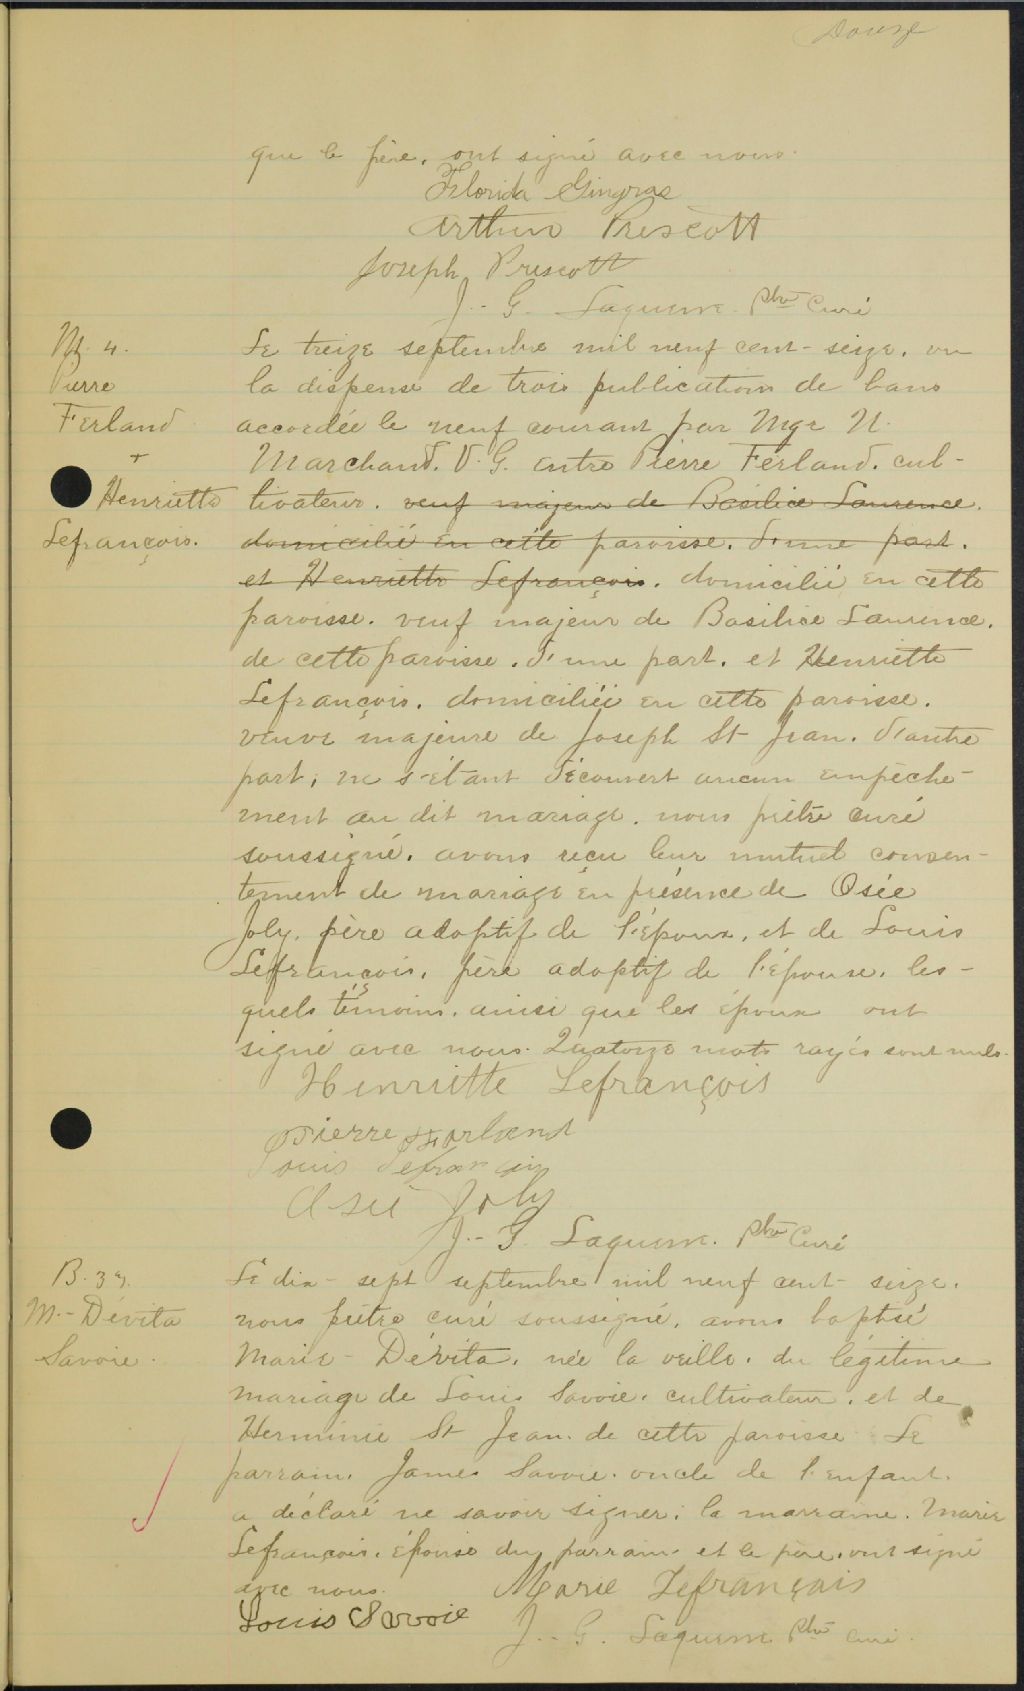 Douze
que le père, ont signé avec nous.
Florida Gingras
Arthur Prescott
Joseph Prescott
J.-G. Laquerre Ptre Curé
M. 4.
Pierre
Ferland
+
Henriette
Lefrançois.
Le treize septembre mil neuf cent-seize, vu
la dispense de trois publications de bans
accordée le neuf courant par Mgr N.
Marchand. V.G. entre Pierre Ferland, cul-
tivateur, veuf majeur de Basilice Laurence,
domicilié en cette paroisse, d'une part,
et Henriette Lefrançois, domicilié en cette
paroisse, veuf majeur de Basilice Laurence,
de cette paroisse, d'une part, et Henriette
Lefrançois, domiciliée en cette paroisse,
veuve majeure de Joseph St Jean, d'autre
part; ne s'étant découvert aucun empêche-
ment au dit mariage, nous prêtre curé
soussigné, avons reçu leur mutuel consen-
tement de mariage en présence de Osée
Joly, père adoptif de l'époux, et de Louis
Lefrançois, père adoptif de l'épouse, les-
quels témoins, ainsi que les époux ont
signé avec nous. Quatorze mots rayés sont nuls.
Henriette Lefrançois
Pierre Ferland
Louis Lefrançois
Osée Joly
J.-G. Laquerre. Ptre Curé
B. 39.
M.-Dévita
Savoie.
Le dix-sept septembre mil neuf cent-seize,
nous prêtre curé soussigné, avons baptisé
Marie-Dévita, née la veille, du légitime
mariage de Louis Savoie, cultivateur, et de
Herminie St Jean de cette paroisse Le
parrain, James Savoie, oncle de l'enfant,
a déclaré ne savoir signer; la marraine, Marie
Lefrançois, épouse du parrain et le père, ont signé
avec nous. Marie Lefrançais
Louis Savoie J.-G. Laquerre Ptre curé.